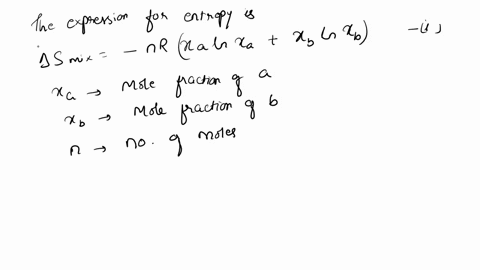 The expression for entropy is
ΔS mix = - nR (xa ln xa + xb ln xb) -(i)
xa → Mole fraction of a
xb → Mole fraction of b
n → no. of moles